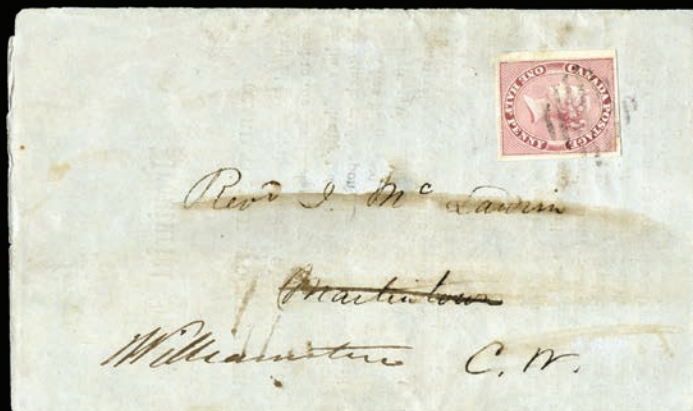 CANADA POSTAGE
ONE HALF PENNY
Revd J. Mc Laurin
Martintown
Williamstown C. W.